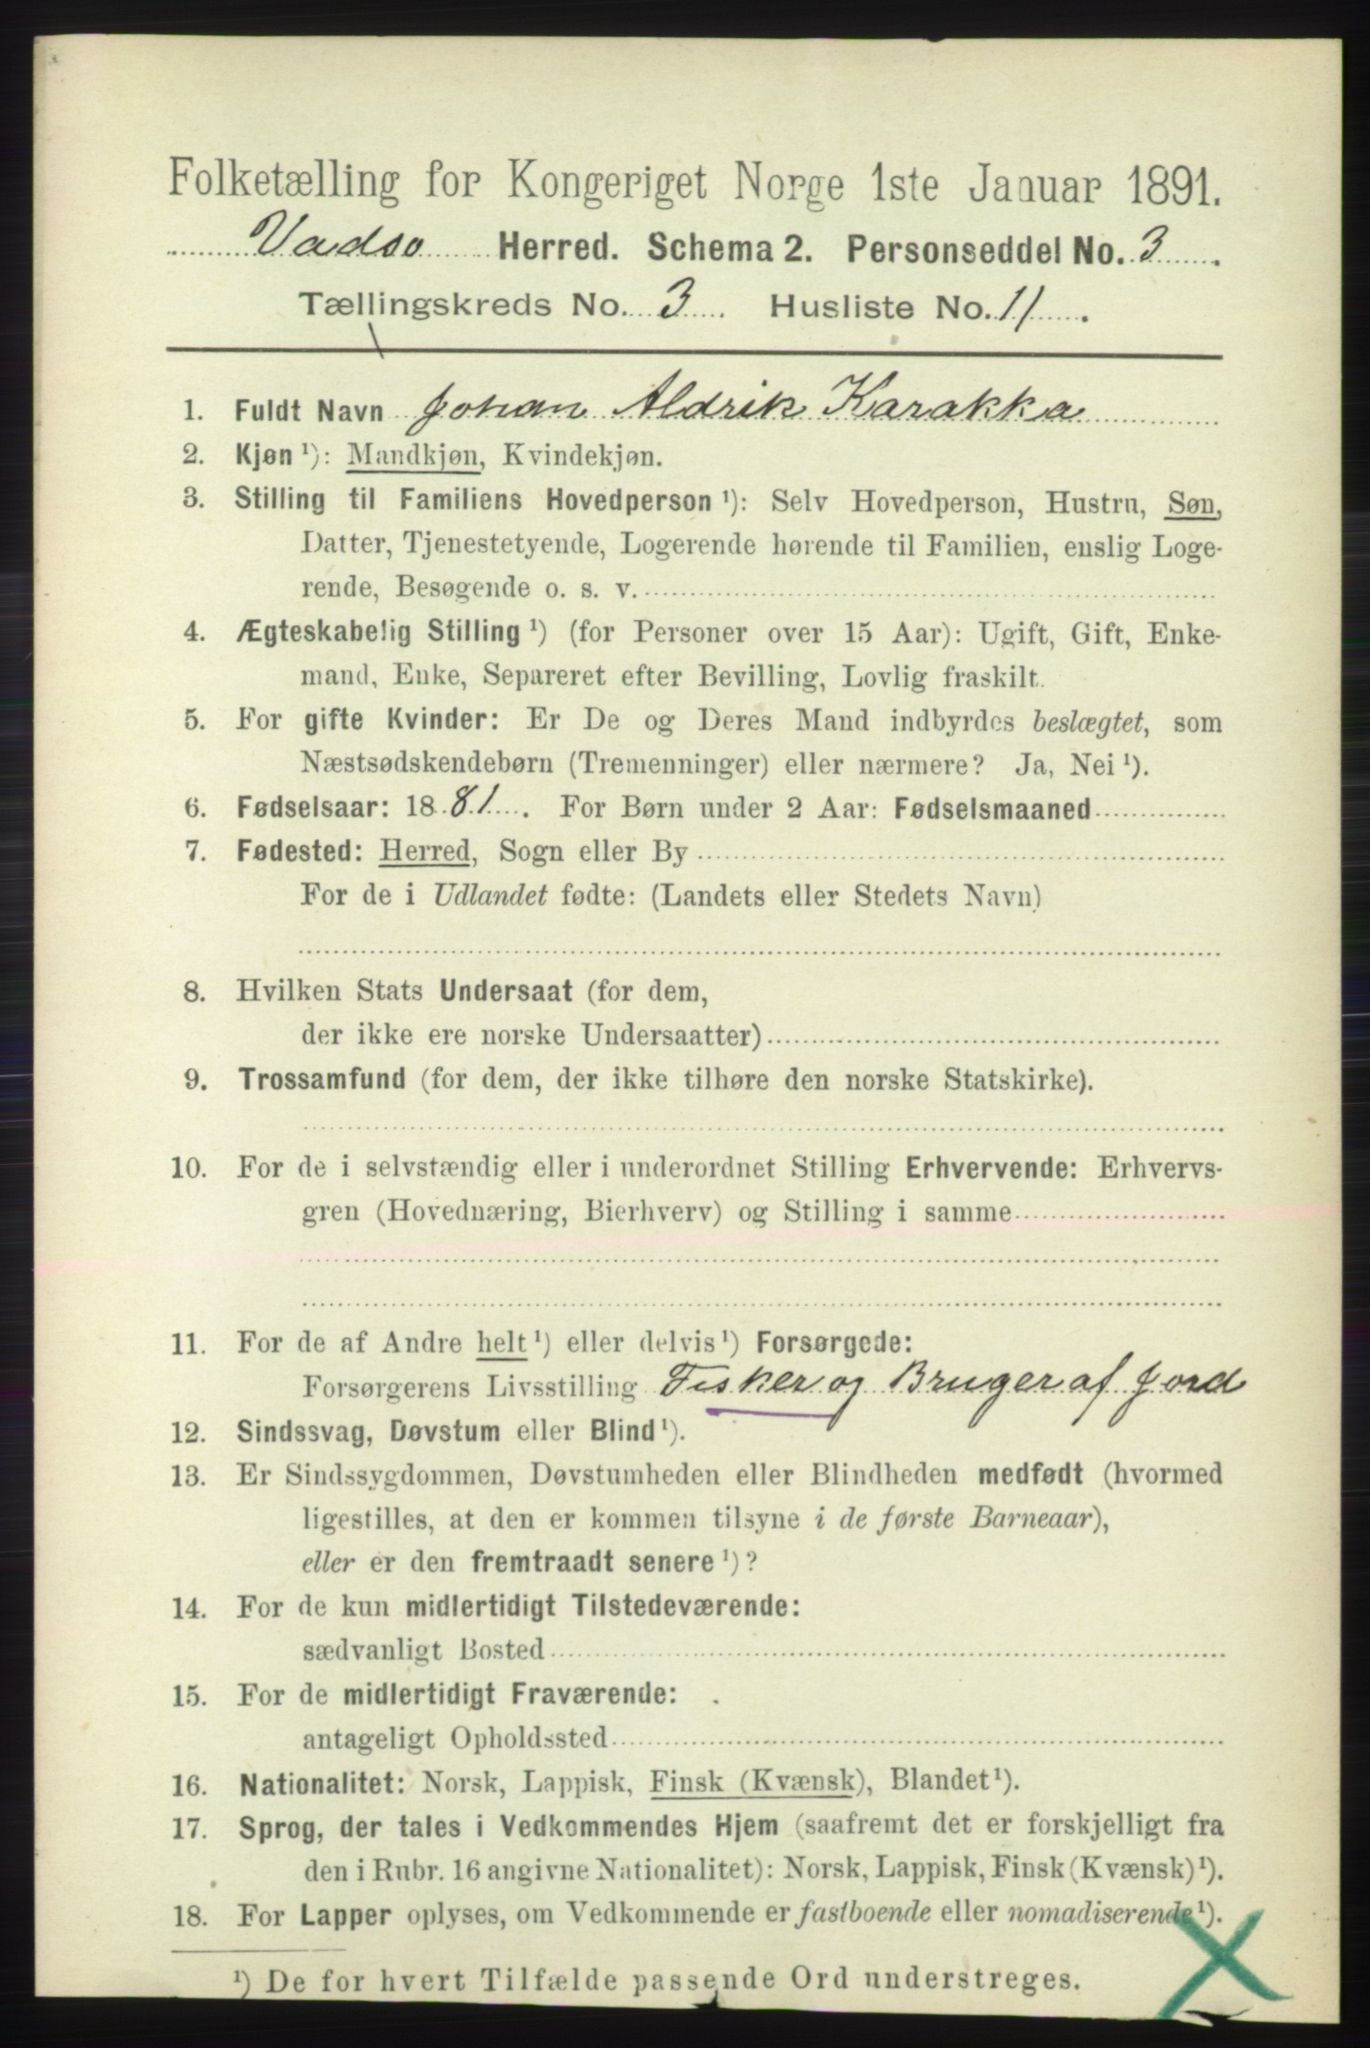 Folketælling for Kongeriget Norge 1ste Januar 1891.
Vadsø Herred. Schema 2. Personseddel No. 3.
Tællingskreds No. 3. Husliste No. 11.
1. Fuldt Navn Johan Aldrik Karakka
2. Kjøn ¹): Mandkjøn, Kvindekjøn.
3. Stilling til Familiens Hovedperson ¹): Selv Hovedperson, Hustru, Søn,
Datter, Tjenestetyende, Logerende hørende til Familien, enslig Loge-
rende, Besøgende o. s. v.
4. Ægteskabelig Stilling ¹) (for Personer over 15 Aar): Ugift, Gift, Enke-
mand, Enke, Separeret efter Bevilling, Lovlig fraskilt.
5. For gifte Kvinder: Er De og Deres Mand indbyrdes beslægtet, som
Næstsødskendebørn (Tremenninger) eller nærmere? Ja, Nei ¹).
6. Fødselsaar: 1881. For Børn under 2 Aar: Fødselsmaaned
7. Fødested: Herred, Sogn eller By
For de i Udlandet fødte: (Landets eller Stedets Navn)
8. Hvilken Stats Undersaat (for dem,
der ikke ere norske Undersaatter)
9. Trossamfund (for dem, der ikke tilhøre den norske Statskirke).
10. For de i selvstændig eller i underordnet Stilling Erhvervende: Erhvervs-
gren (Hovednæring, Bierhverv) og Stilling i samme
11. For de af Andre helt ¹) eller delvis ¹) Forsørgede:
Forsørgerens Livsstilling Fisker og Bruger af Jord
12. Sindssvag, Døvstum eller Blind ¹).
13. Er Sindssygdommen, Døvstumheden eller Blindheden medfødt (hvormed
ligestilles, at den er kommen tilsyne i de første Barneaar),
eller er den fremtraadt senere ¹)?
14. For de kun midlertidigt Tilstedeværende:
sædvanligt Bosted
15. For de midlertidigt Fraværende:
antageligt Opholdssted
16. Nationalitet: Norsk, Lappisk, Finsk (Kvænsk), Blandet ¹).
17. Sprog, der tales i Vedkommendes Hjem (saafremt det er forskjelligt fra
den i Rubr. 16 angivne Nationalitet): Norsk, Lappisk, Finsk (Kvænsk) ¹).
18. For Lapper oplyses, om Vedkommende er fastboende eller nomadiserende ¹).
¹) De for hvert Tilfælde passende Ord understreges.